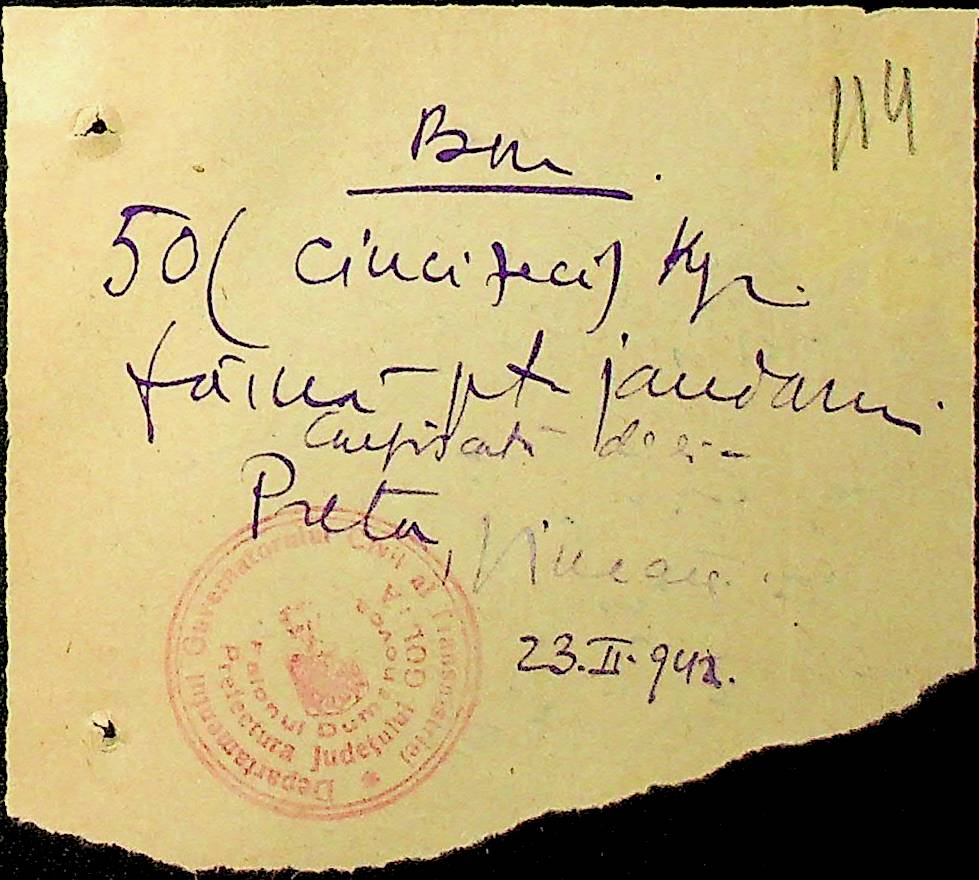 114
Bon
50 ( cincizeci) Kgr.
făină pt. jandarm.
Confiscată de la
Pretor,
23.II.942.
Departamentul Guvernatorului Civil al Transnistriei
Prefectura Județului GOLTA
Raionul Dumanovca